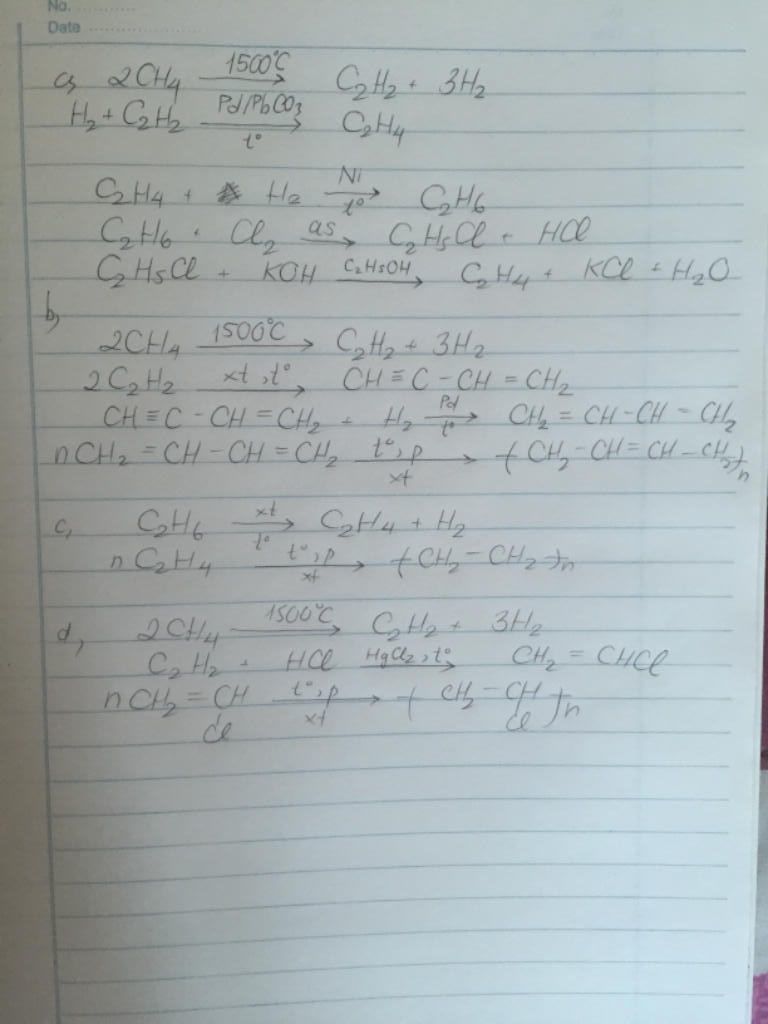 No. ............
Date ....................
a, 2CH4 —1500°C→ C2H2 + 3H2
H2 + C2H2 —Pd/PbCO3, t°→ C2H4
C2H4 + H2 —Ni, t°→ C2H6
C2H6 + Cl2 —as→ C2H5Cl + HCl
C2H5Cl + KOH —C2H5OH→ C2H4 + KCl + H2O
b,
2CH4 —1500°C→ C2H2 + 3H2
2C2H2 —xt, t°→ CH≡C-CH=CH2
CH≡C-CH=CH2 + H2 —Pd, t°→ CH2=CH-CH=CH2
nCH2=CH-CH=CH2 —t°, p, xt→ (CH2-CH=CH-CH2)n
c, C2H6 —xt, t°→ C2H4 + H2
nC2H4 —t°, p, xt→ (CH2-CH2)n
d, 2CH4 —1500°C→ C2H2 + 3H2
C2H2 + HCl —HgCl2, t°→ CH2=CHCl
nCH2=CH —t°, p, xt→ (CH2-CH)n
Cl Cl